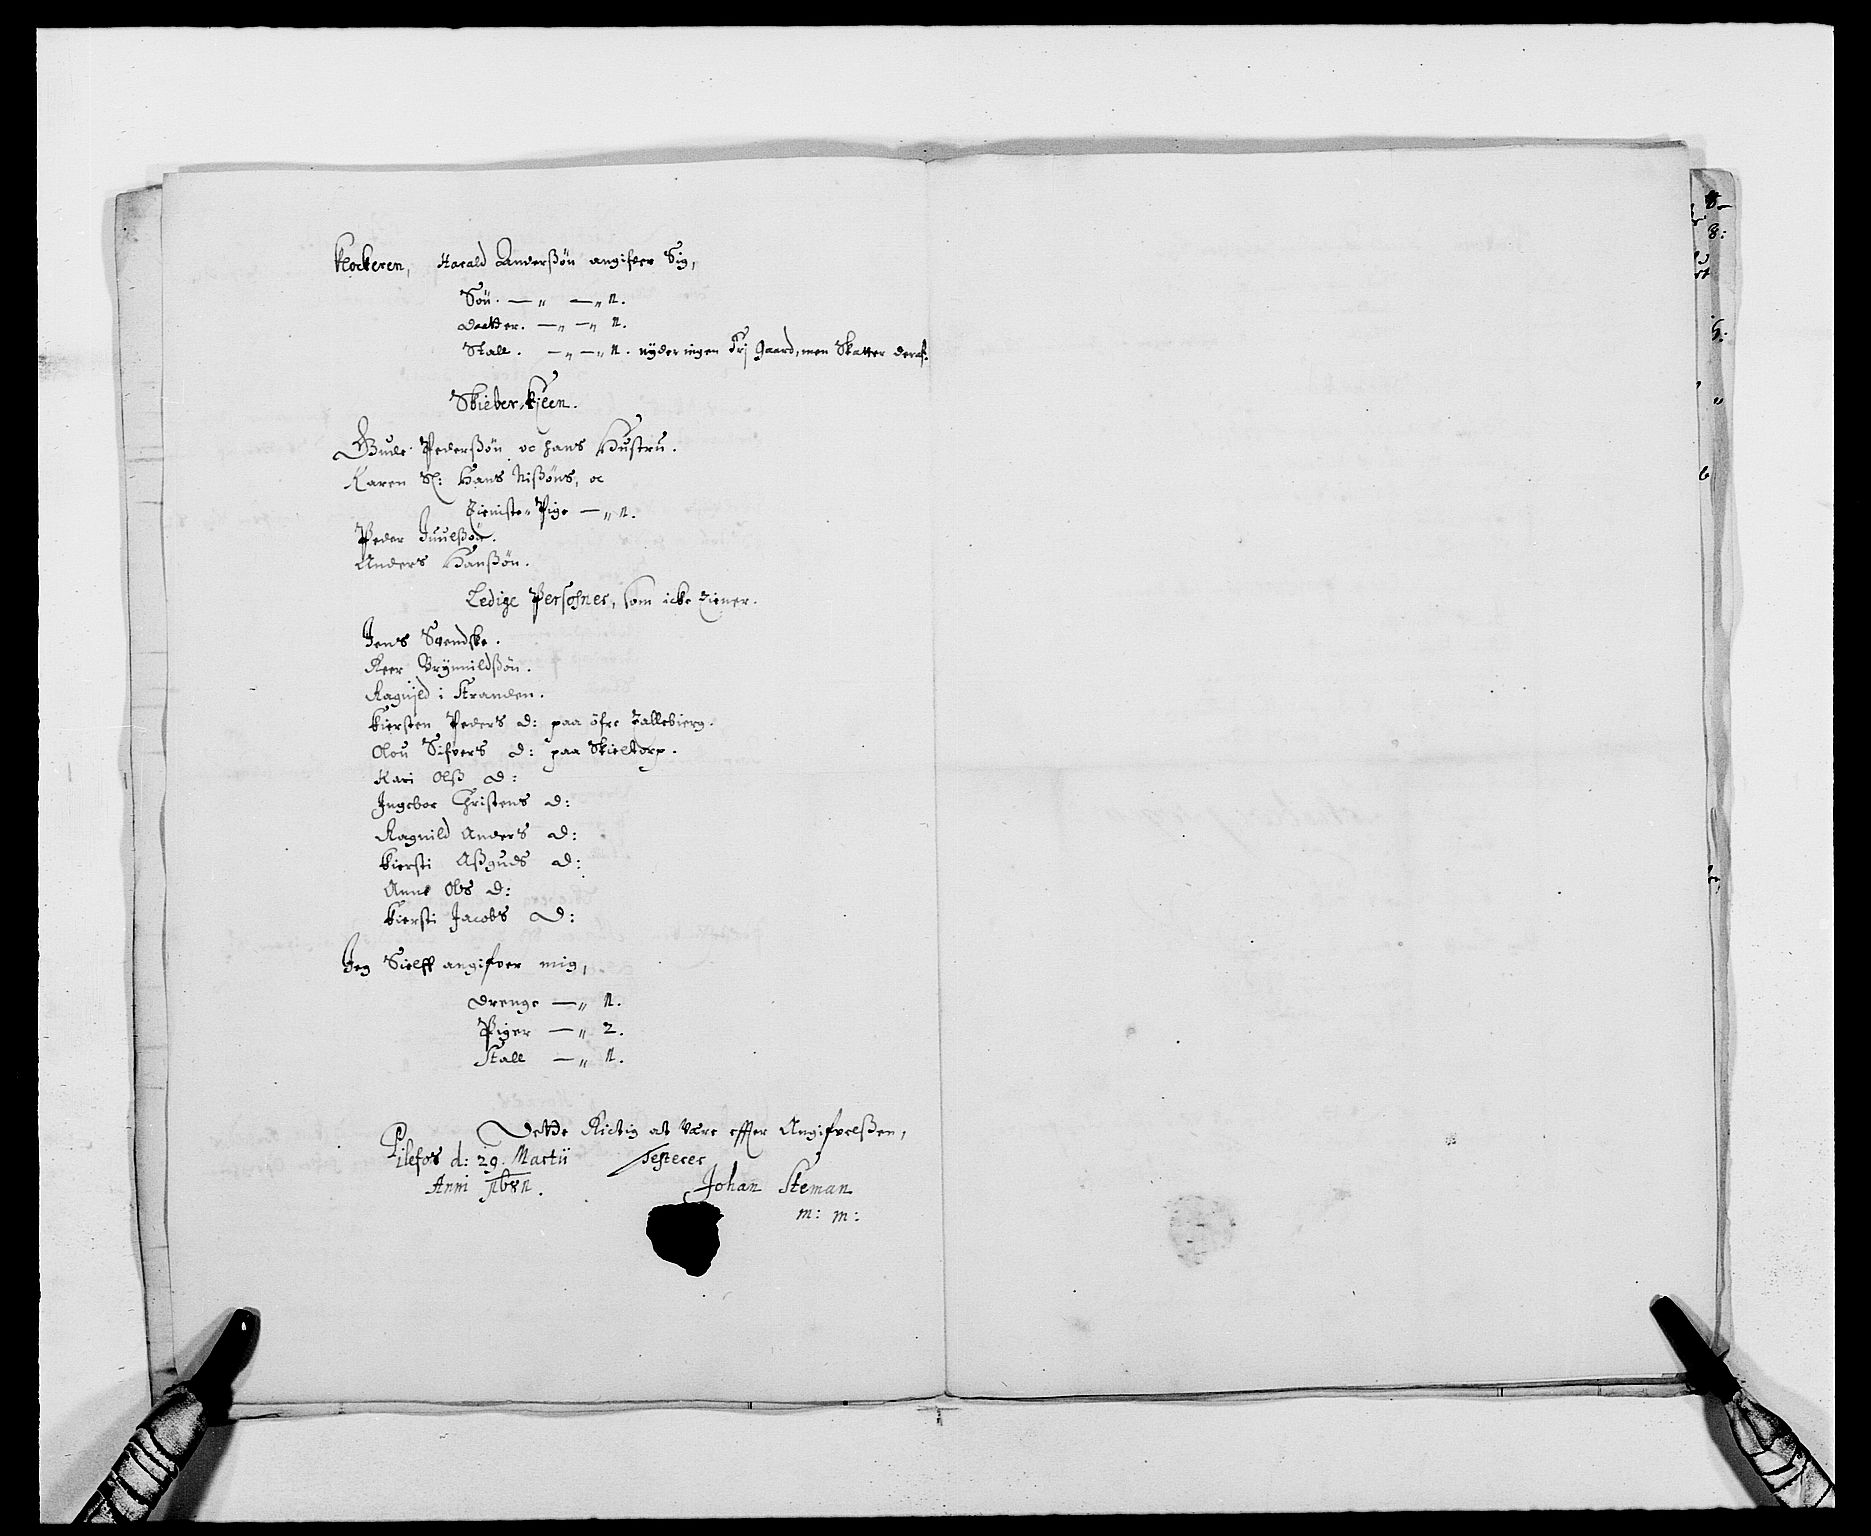 Klockeren, Harald Anderßøn angifver Sig,
Søn. — „ — „ 1.
Daatter. — „ — „ 1.
Stall. — „ — „ 1. nyder ingen Frj Gaard, men Skatter deraf.
Skieberkjeen.
Gude Pederßøn oc hans Hustru.
Karen Sl: Hans Nißøns, oc
Tieniste Pige — „ 1.
Peder Juulßøn.
Anders Hanßøn.
Ledige Persohner, som icke tiener.
Jens Svendske.
Peer Brynnildßøn.
Ragnild i Stranden.
Kiersten Peders D: paa öfre Tallebierg.
Olou Sifvers D: paa Skieltorp.
Kari Olß D:
Ingebor Christens D:
Ragnild Anders D:
Kiersti Aßguds D:
Anne Ols D:
Kiersti Jacobs D:
Jeg Sielff angifver mig,
Drenge — „ 1.
Piger — „ 2.
Stall — „ 1.
Dette Rictig at være effter Angifvelßen,
Pilefos d: 29. Martii Testerer
Anni 1681. Johan Steman
m: m: